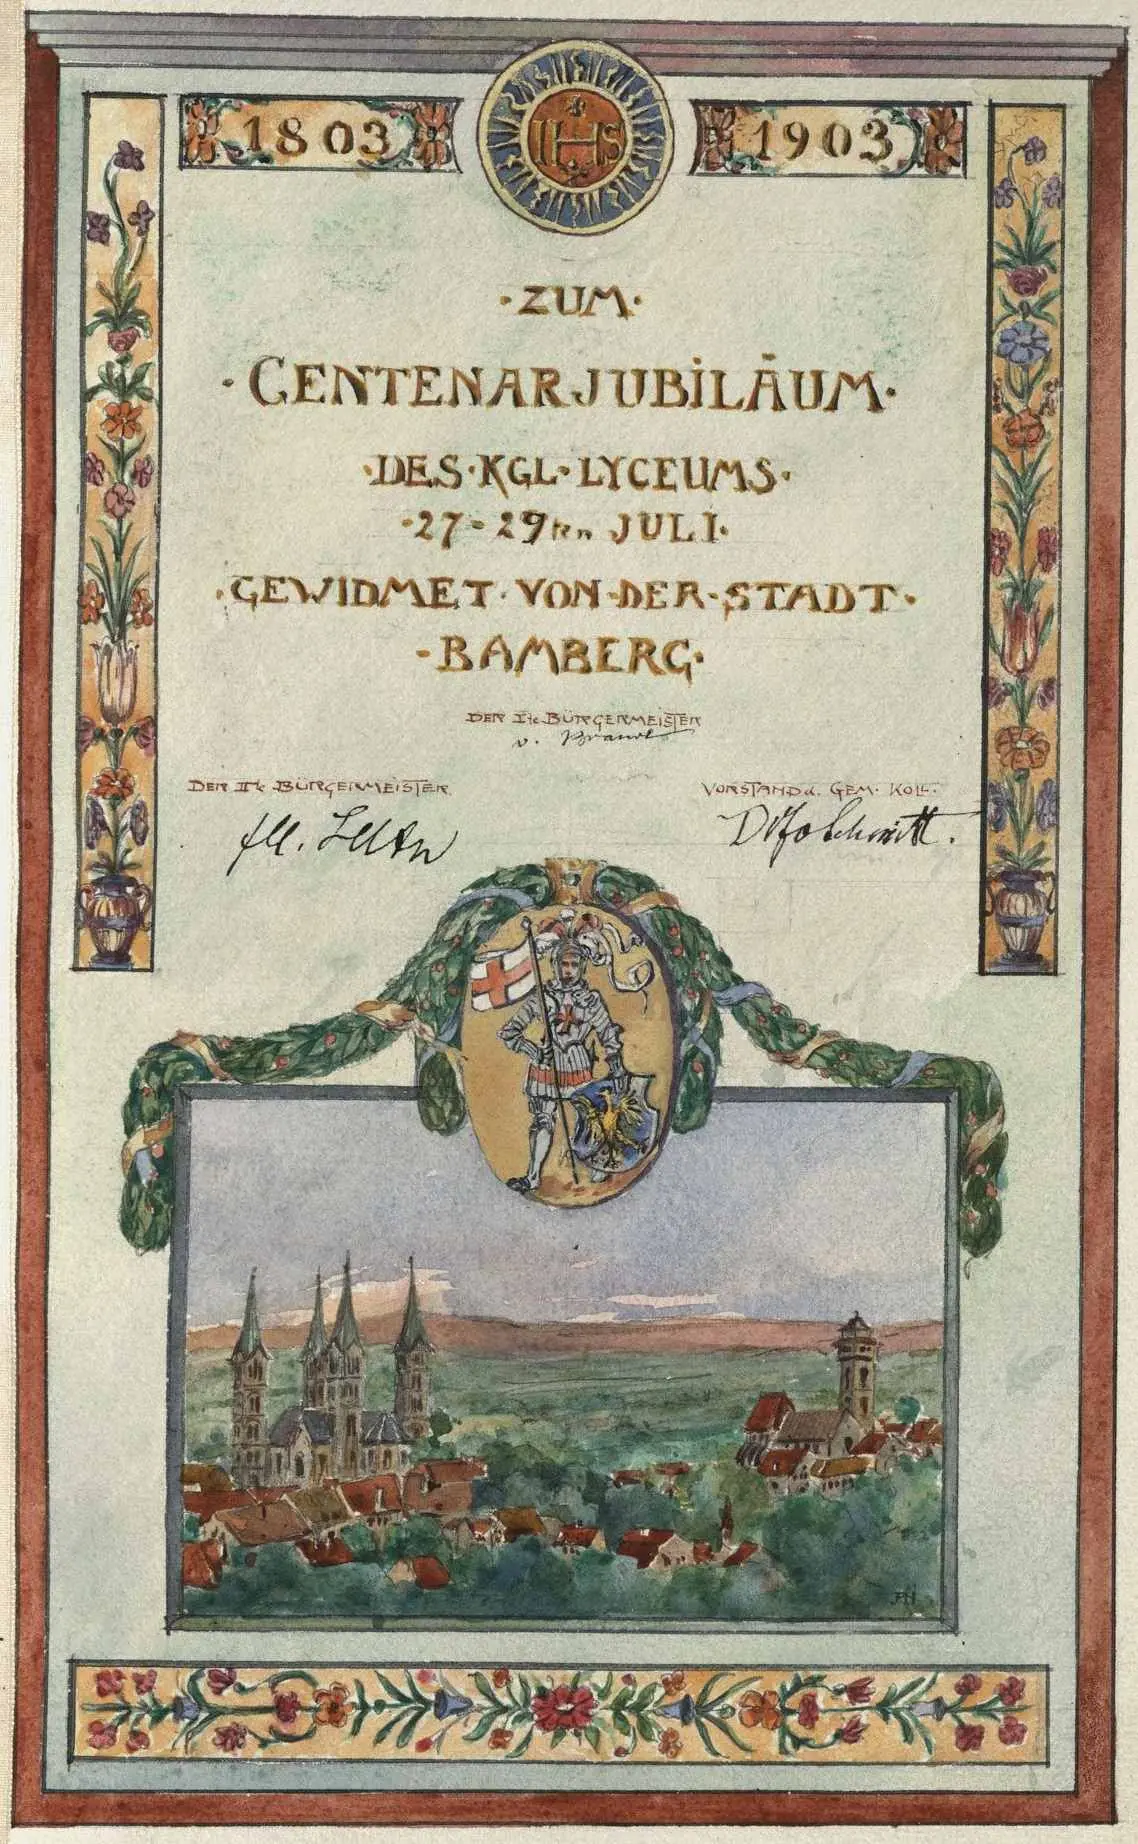 1803
IHS
1903
·ZUM·
·CENTENARJUBILÄUM·
·DES·KGL·LYCEUMS·
·27-29ten JULI·
·GEWIDMET·VON·DER·STADT·
·BAMBERG·
DER Ite BÜRGERMEISTER
v. Brandt
DER IIte BÜRGERMEISTER.
VORSTAND d. GEM. KOLL.
Schmitt.